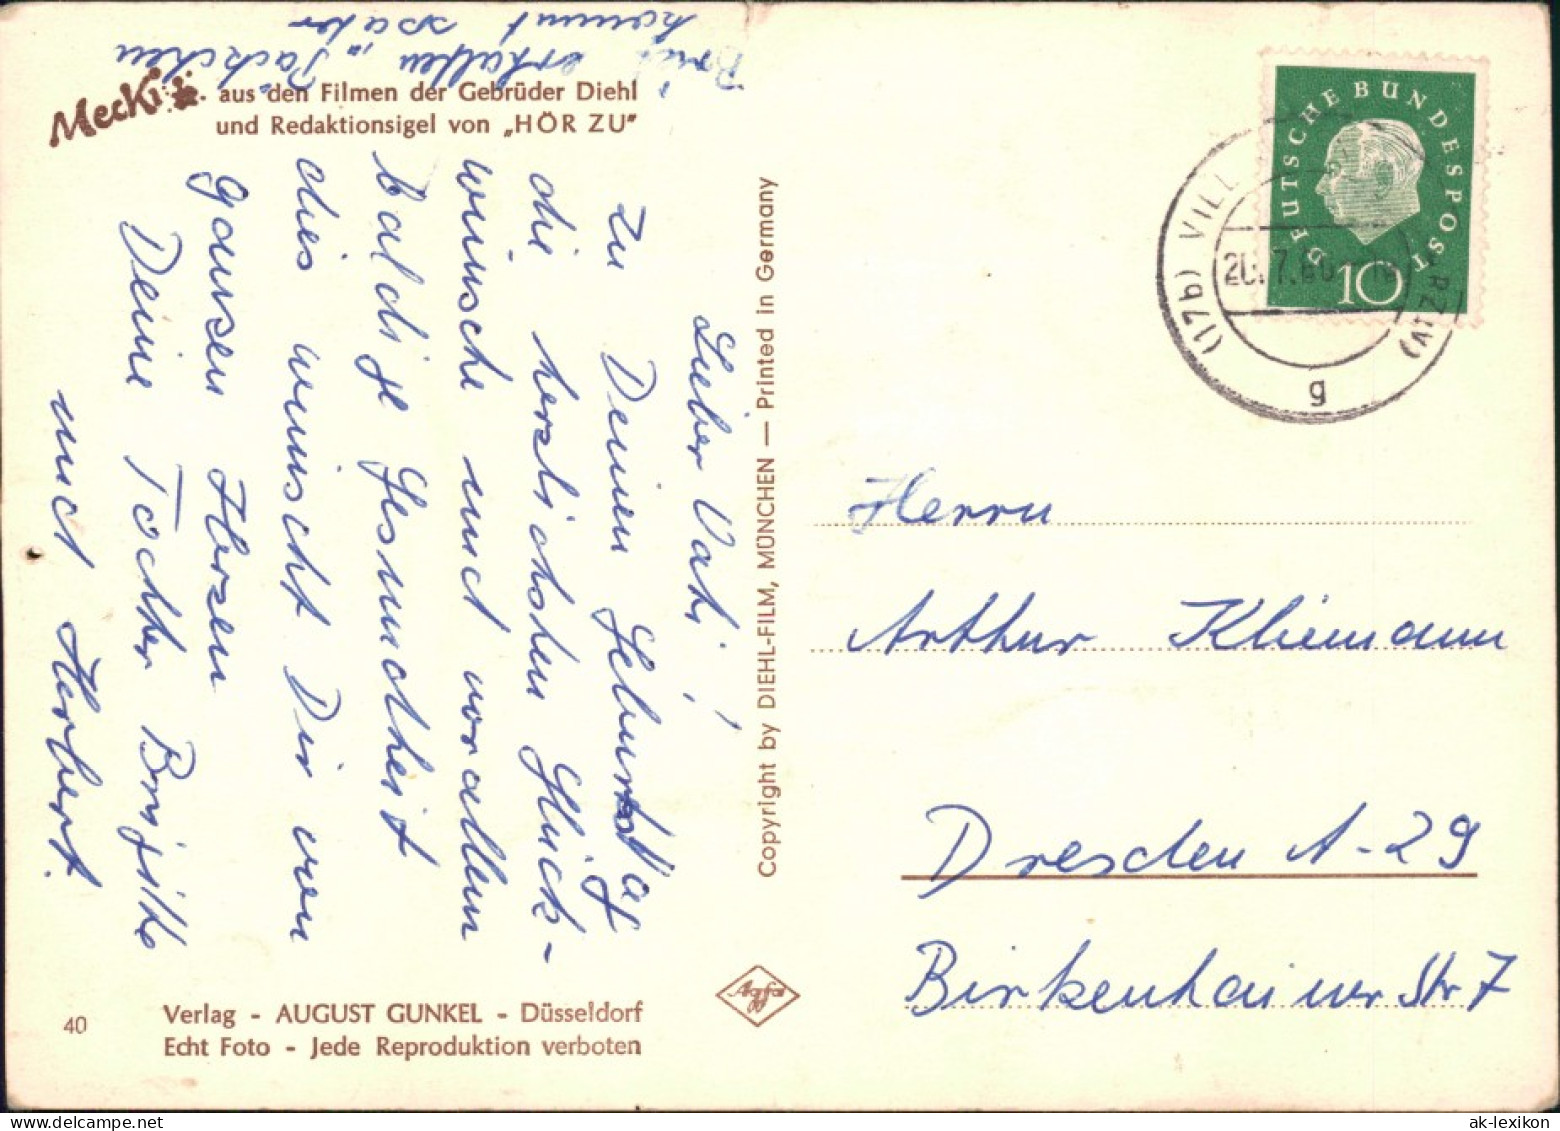 Brief erhalten „Päckchen"
kommt später
Mecki
aus den Filmen der Gebrüder Diehl
und Redaktionsigel von „HÖR ZU"
Lieber Vati!
Zu Deinem Geburtstag
die herzlichsten Glück-
wünsche und vor allem
baldige Gesundheit
dies wünscht Dir von
ganzen Herzen
Deine Tochter Brigitte
und Herbert.
40
Verlag - AUGUST GUNKEL - Düsseldorf
Echt Foto - Jede Reproduktion verboten
Copyright by DIEHL-FILM, MÜNCHEN — Printed in Germany
Agfa
DEUTSCHE BUNDESPOST
10
(17b) VILL
ARZW)
g
Herrn
Arthur Kliemann
Dresden A-29
Birkenhainer Str 7
ak-lexikon